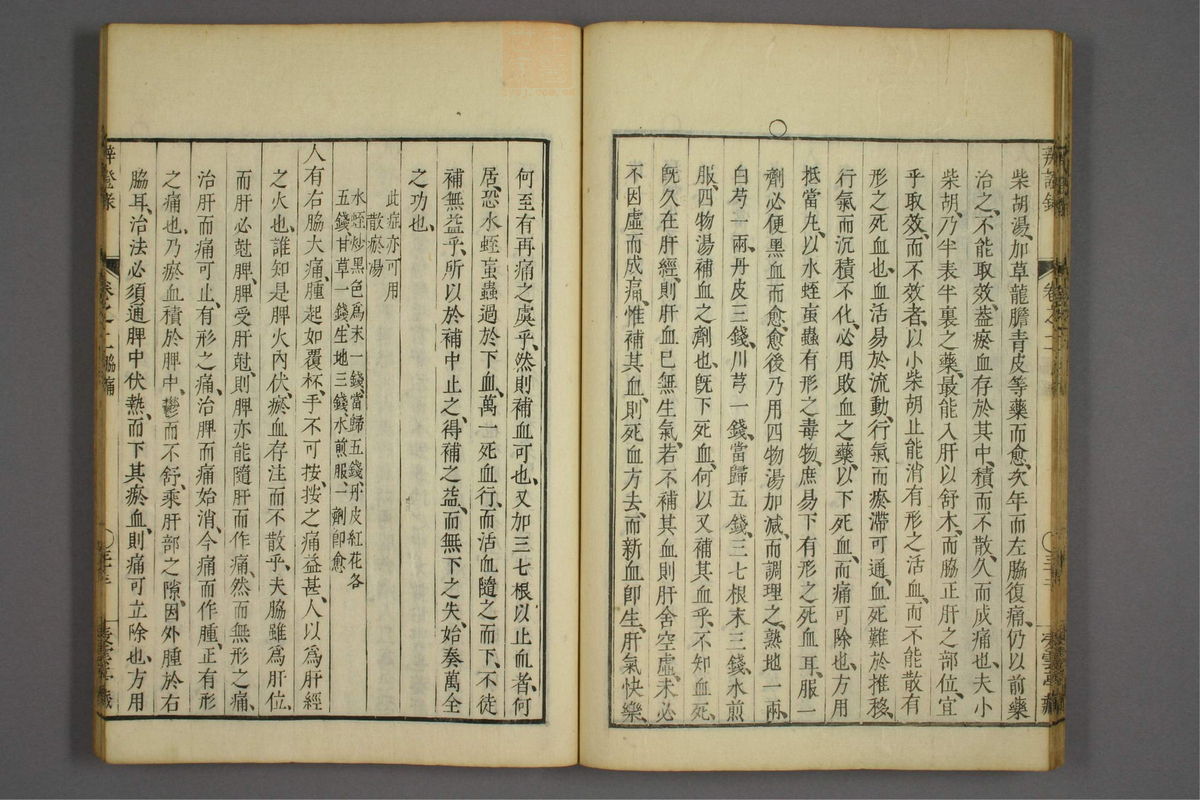 柴胡湯、加草龍膽青皮等藥而愈、次年而左脇復痛、仍以前藥
治之、不能取效、葢瘀血存於其中、積而不散、久而成痛也、夫小
柴胡、乃半表半裏之藥、最能入肝以舒木、而脇正肝之部位、宜
乎取效、而不效者、以小柴胡止能消有形之活血、而不能散有
形之死血也、血活易於流動、行氣而瘀滯可通、血死難於推移、
行氣而沉積不化、必用敗血之藥、以下死血、而痛可除也、方用
抵當丸、以水蛭䖟蟲有形之毒物、庶易下有形之死血耳、服一
劑必便黑血而愈、愈後乃用四物湯加減、而調理之、熟地一兩、
白芍一兩、丹皮三錢、川芎一錢、當歸五錢、三七根末三錢、水煎
服、四物湯補血之劑也、旣下死血、何以又補其血乎、不知血死
旣久、在肝經、則肝血已無生氣、若不補其血、則肝舍空虛、未必
不因虛而成痛、惟補其血、則死血方去、而新血卽生、肝氣快樂、
何至有再痛之虞乎、然則補血可也、又加三七根以止血者、何
居、恐水蛭䖟蟲過於下血、萬一死血行、而活血隨之而下、不徒
補無益乎、所以於補中止之、得補之益、而無下之失、始奏萬全
之功也、
此症亦可用
散瘀湯
水蛭炒黑色爲末一錢當歸五錢丹皮紅花各
五錢甘草一錢生地三錢水煎服一劑卽愈
人有右脇大痛、腫起如覆杯、手不可按、按之痛益甚、人以爲肝經
之火也、誰知是脾火內伏、瘀血存注而不散乎、夫脇雖爲肝位、
而肝必尅脾、脾受肝尅、則脾亦能隨肝而作痛、然而無形之痛、
治肝而痛可止、有形之痛、治脾而痛始消、今痛而作腫、正有形
之痛也、乃瘀血積於脾中、鬱而不舒、乘肝部之隙、因外腫於右
脇耳、治法必須通脾中伏熱、而下其瘀血、則痛可立除也、方用
辨證錄
卷之二 脇痛